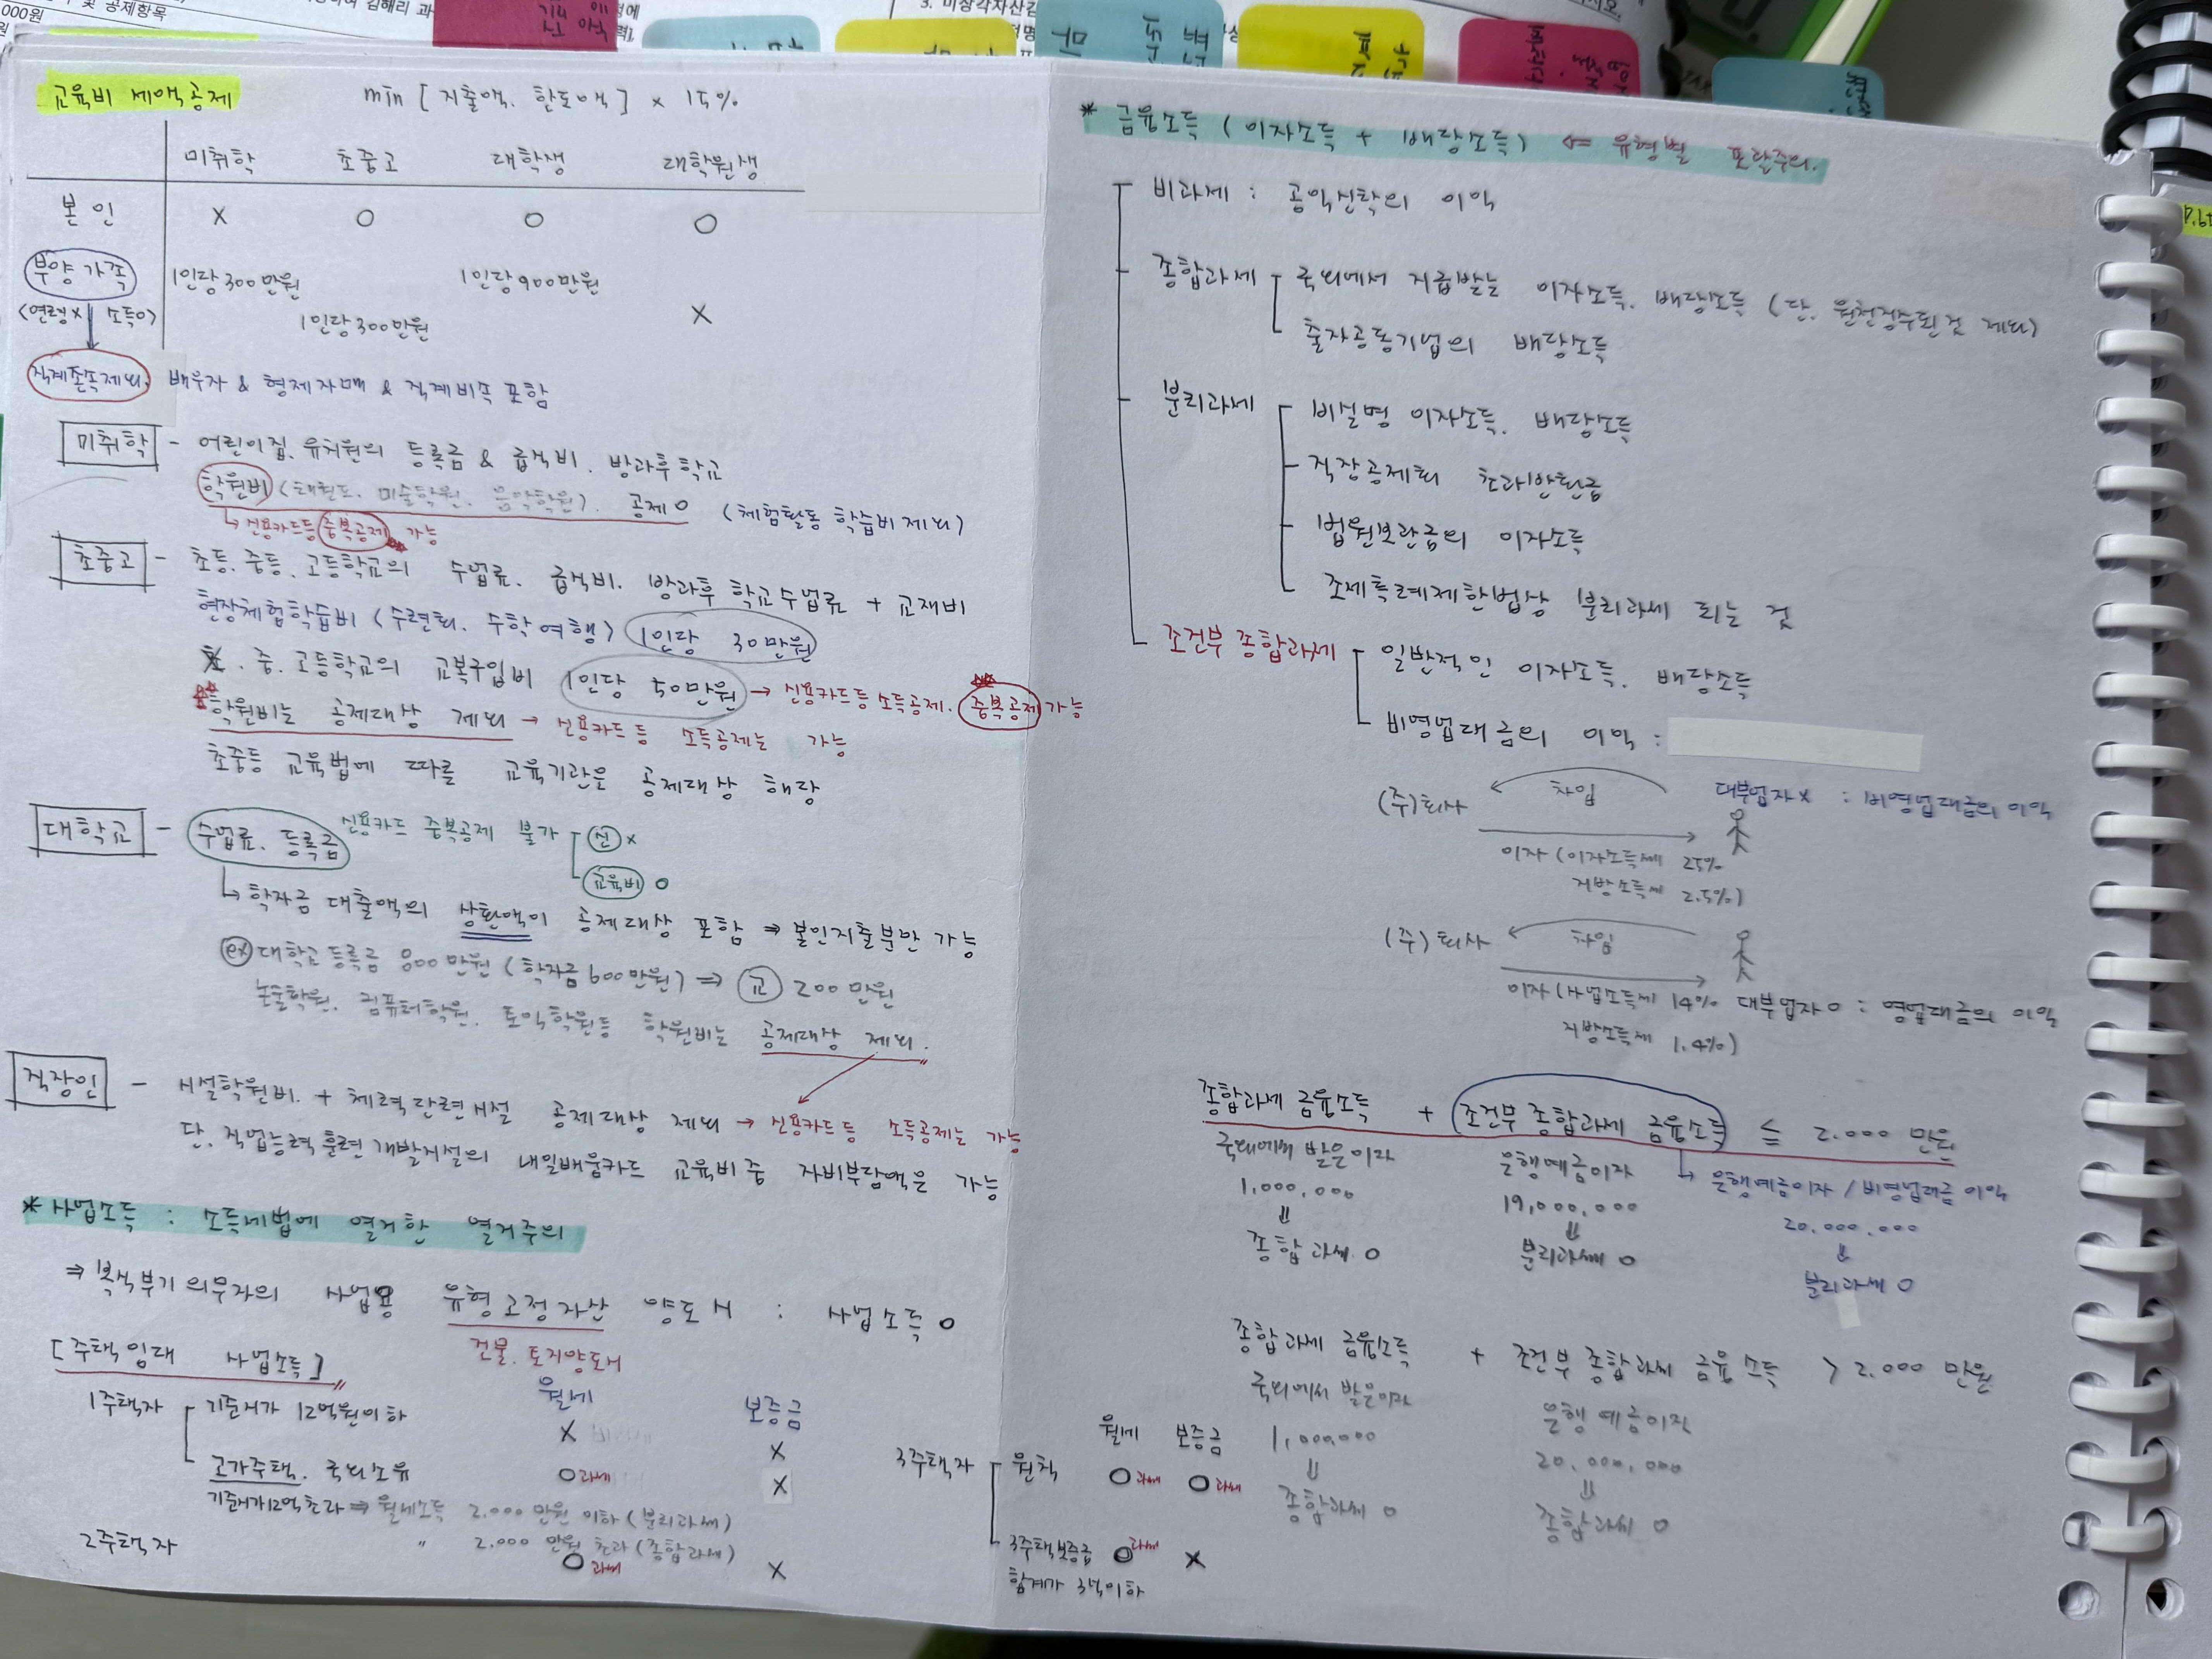 교육비 세액공제
min [ 지출액. 한도액 ] × 15%
미취학 초중고 대학생 대학원생
본인 × ○ ○ ○
부양가족 1인당 300만원 1인당 900만원
<연령× 소득○> 1인당 300만원 ×
직계존속제외. 배우자 & 형제자매 & 직계비속 포함
미취학 - 어린이집. 유치원의 등록금 & 급식비. 방과후학교
학원비 (태권도. 미술학원. 음악학원). 공제 ○ (체험활동 학습비 제외)
↳ 신용카드등 중복공제 가능
초중고 - 초등. 중등. 고등학교의 수업료. 급식비. 방과후 학교수업료 + 교재비
현장체험학습비 (수련회. 수학여행) 1인당 30만원
중. 고등학교의 교복구입비 1인당 50만원 → 신용카드등 소득공제. 중복공제 가능
학원비는 공제대상 제외 → 신용카드등 소득공제는 가능
초중등 교육법에 따른 교육기관은 공제대상 해당
대학교 - 수업료. 등록금 신용카드 중복공제 불가 신 ×
교육비 ○
↳ 학자금 대출액의 상환액이 공제대상 포함 ⇒ 본인지출분만 가능
ex 대학교등록금 800만원 (학자금 600만원) ⇒ 교 200만원
논술학원. 컴퓨터학원. 토익학원등 학원비는 공제대상 제외.
직장인 - 시설학원비. + 체력단련시설 공제대상 제외 → 신용카드등 소득공제는 가능
단. 직업능력훈련개발시설의 내일배움카드 교육비 중 자비부담액은 가능
* 사업소득 : 소득세법에 열거한 열거주의
⇒ 복식부기의무자의 사업용 유형고정자산 양도시 : 사업소득 ○
건물. 토지양도시
[주택임대 사업소득]
월세 보증금
1주택자 기준시가 12억원이하 × ×
고가주택. 국외소유 ○과세 ×
기준시가12억초과 ⇒ 월세소득 2.000만원 이하 (분리과세)
〃 2.000만원 초과 (종합과세)
2주택자 ○과세 ×
월세 보증금
3주택자 원칙 ○과세 ○과세
3주택보증금 ○과세 ×
합계가 3억이하
* 금융소득 (이자소득 + 배당소득) ⇐ 유형별 포괄주의.
비과세 : 공익신탁의 이익
종합과세 국외에서 지급받는 이자소득. 배당소득 (단. 원천징수된것 제외)
출자공동기업의 배당소득
분리과세 비실명 이자소득. 배당소득
직장공제회 초과반환금
법원보관금의 이자소득
조세특례제한법상 분리과세 되는 것
조건부 종합과세 일반적인 이자소득. 배당소득
비영업대금의 이익 :
(주)회사 차입 대부업자× : 비영업대금의 이익
이자 (이자소득세 25%
지방소득세 2.5%)
(주)회사 차입
이자 (사업소득세 14% 대부업자○ : 영업대금의 이익
지방소득세 1.4%)
종합과세 금융소득 + 조건부 종합과세 금융소득 ≦ 2.000만원
국외에서 받은이자 은행예금이자 ↳ 은행예금이자 / 비영업대금 이익
1,000,000 19,000,000 20.000.000
⇓ ⇓ ⇓
종합과세 ○ 분리과세 ○ 분리과세 ○
종합과세 금융소득 + 조건부 종합과세 금융소득 > 2.000만원
국외에서 받은이자 은행예금이자
1,000,000 20,000,000
⇓ ⇓
종합과세 ○ 종합과세 ○